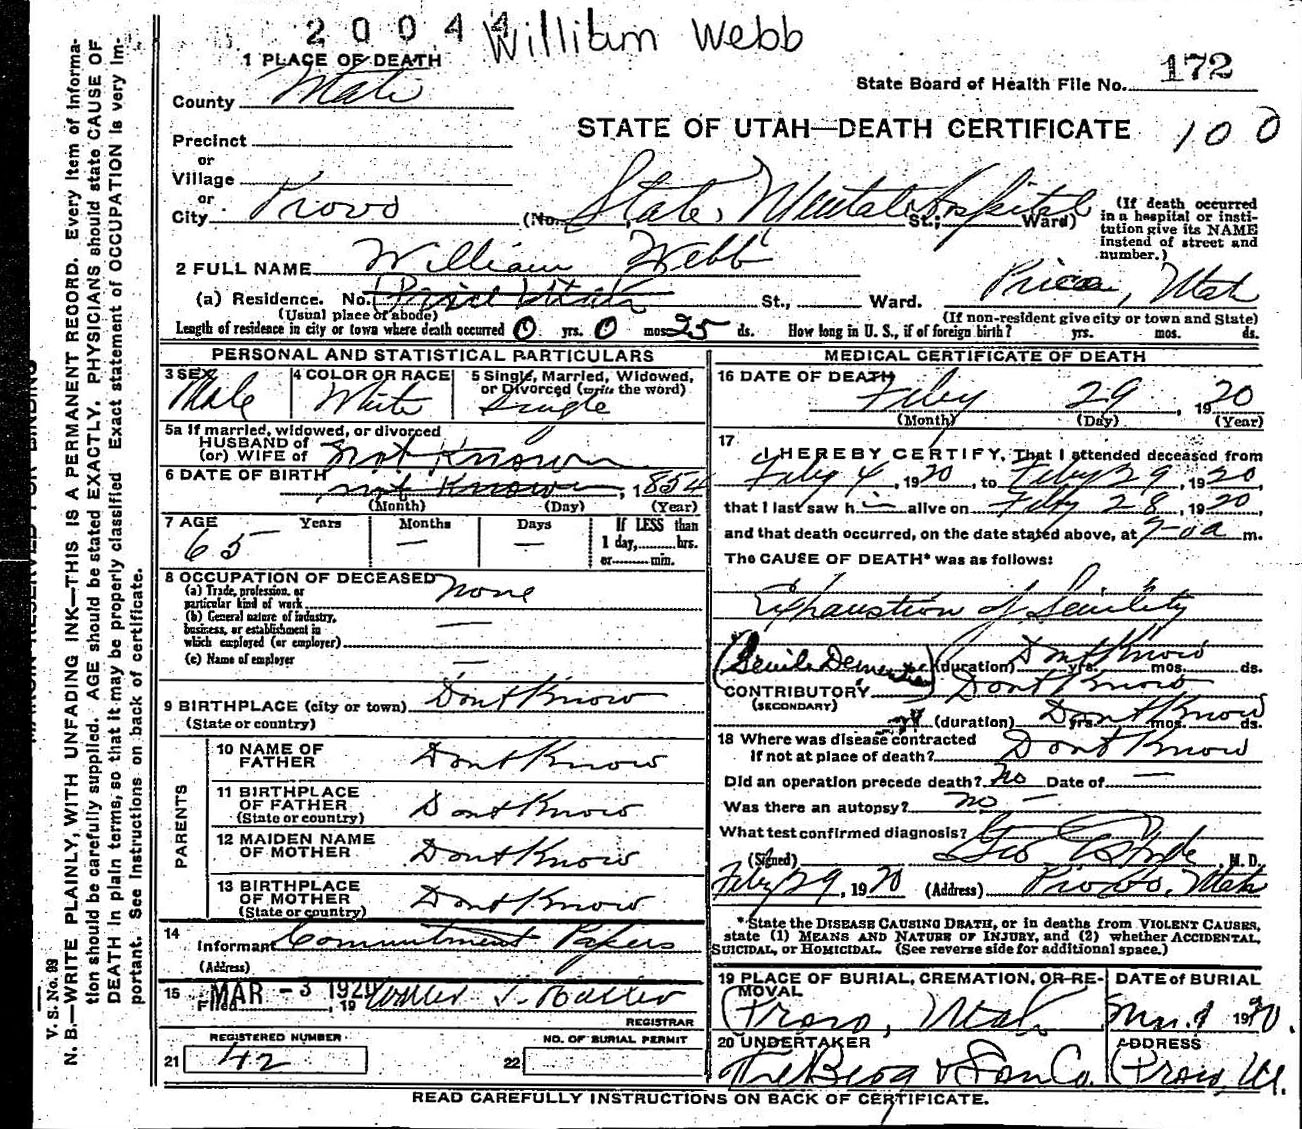 20044 William Webb
172
State Board of Health File No.
1 PLACE OF DEATH
County Utah
STATE OF UTAH—DEATH CERTIFICATE
100
Precinct
or
Village
or
City Provo (No. State Mental Hospital St.; Ward)
(If death occurred in a hospital or institution give its NAME instead of street and number.)
2 FULL NAME William Webb
(a) Residence. No. Price Utah St., Ward. Price, Utah
(Usual place of abode) (If non-resident give city or town and State)
Length of residence in city or town where death occurred 0 yrs. 0 mos. 25 ds. How long in U. S., if of foreign birth? yrs. mos. ds.
PERSONAL AND STATISTICAL PARTICULARS
3 SEX Male
4 COLOR OR RACE White
5 Single, Married, Widowed, or Divorced (write the word) Single
5a If married, widowed, or divorced
HUSBAND of
(or) WIFE of not Known
6 DATE OF BIRTH not Known, 1854
(Month) (Day) (Year)
7 AGE Years Months Days If LESS than
65 — — 1 day,........hrs.
or........min.
8 OCCUPATION OF DECEASED none
(a) Trade, profession, or
particular kind of work
(b) General nature of industry,
business, or establishment in
which employed (or employer) —
(c) Name of employer —
9 BIRTHPLACE (city or town) Dont Know
(State or country)
PARENTS
10 NAME OF FATHER Dont Know
11 BIRTHPLACE OF FATHER Dont Know
(State or country)
12 MAIDEN NAME OF MOTHER Dont Know
13 BIRTHPLACE OF MOTHER Dont Know
(State or country)
14 Informant Commitment Papers
(Address)
15 Filed MAR -3 1920, 19
REGISTRAR
REGISTERED NUMBER
21 42
NO. OF BURIAL PERMIT
22
MEDICAL CERTIFICATE OF DEATH
16 DATE OF DEATH Feby 29, 1920
(Month) (Day) (Year)
17
I HEREBY CERTIFY, That I attended deceased from
Feby 4, 1920, to Feby 29, 1920,
that I last saw h im alive on Feby 28, 1920,
and that death occurred, on the date stated above, at 7-0a m.
The CAUSE OF DEATH* was as follows:
Exhaustion of Senility
(Senile Dementia) (duration) Dont Know yrs. mos. ds.
CONTRIBUTORY Dont Know
(SECONDARY)
(duration) Dont Know yrs. mos. ds.
18 Where was disease contracted
if not at place of death? Dont Know
Did an operation precede death? no Date of —
Was there an autopsy? no —
What test confirmed diagnosis?
(Signed) Geo E Hyde, M. D.
Feby 29, 1920 (Address) Provo, Utah
*State the DISEASE CAUSING DEATH, or in deaths from VIOLENT CAUSES,
state (1) MEANS AND NATURE OF INJURY, and (2) whether ACCIDENTAL,
SUICIDAL, or HOMICIDAL. (See reverse side for additional space.)
19 PLACE OF BURIAL, CREMATION, OR REMOVAL
Provo, Utah
DATE of BURIAL
Mar. 1 1920.
20 UNDERTAKER
The Berg & Son Co.
ADDRESS
Provo, Ut.
READ CAREFULLY INSTRUCTIONS ON BACK OF CERTIFICATE.
V. S. No. 99
N. B.—WRITE PLAINLY, WITH UNFADING INK—THIS IS A PERMANENT RECORD. Every item of information
should be carefully supplied. AGE should be stated EXACTLY. PHYSICIANS should state CAUSE OF
DEATH in plain terms, so that it may be properly classified. Exact statement of OCCUPATION is very important.
See instructions on back of certificate.